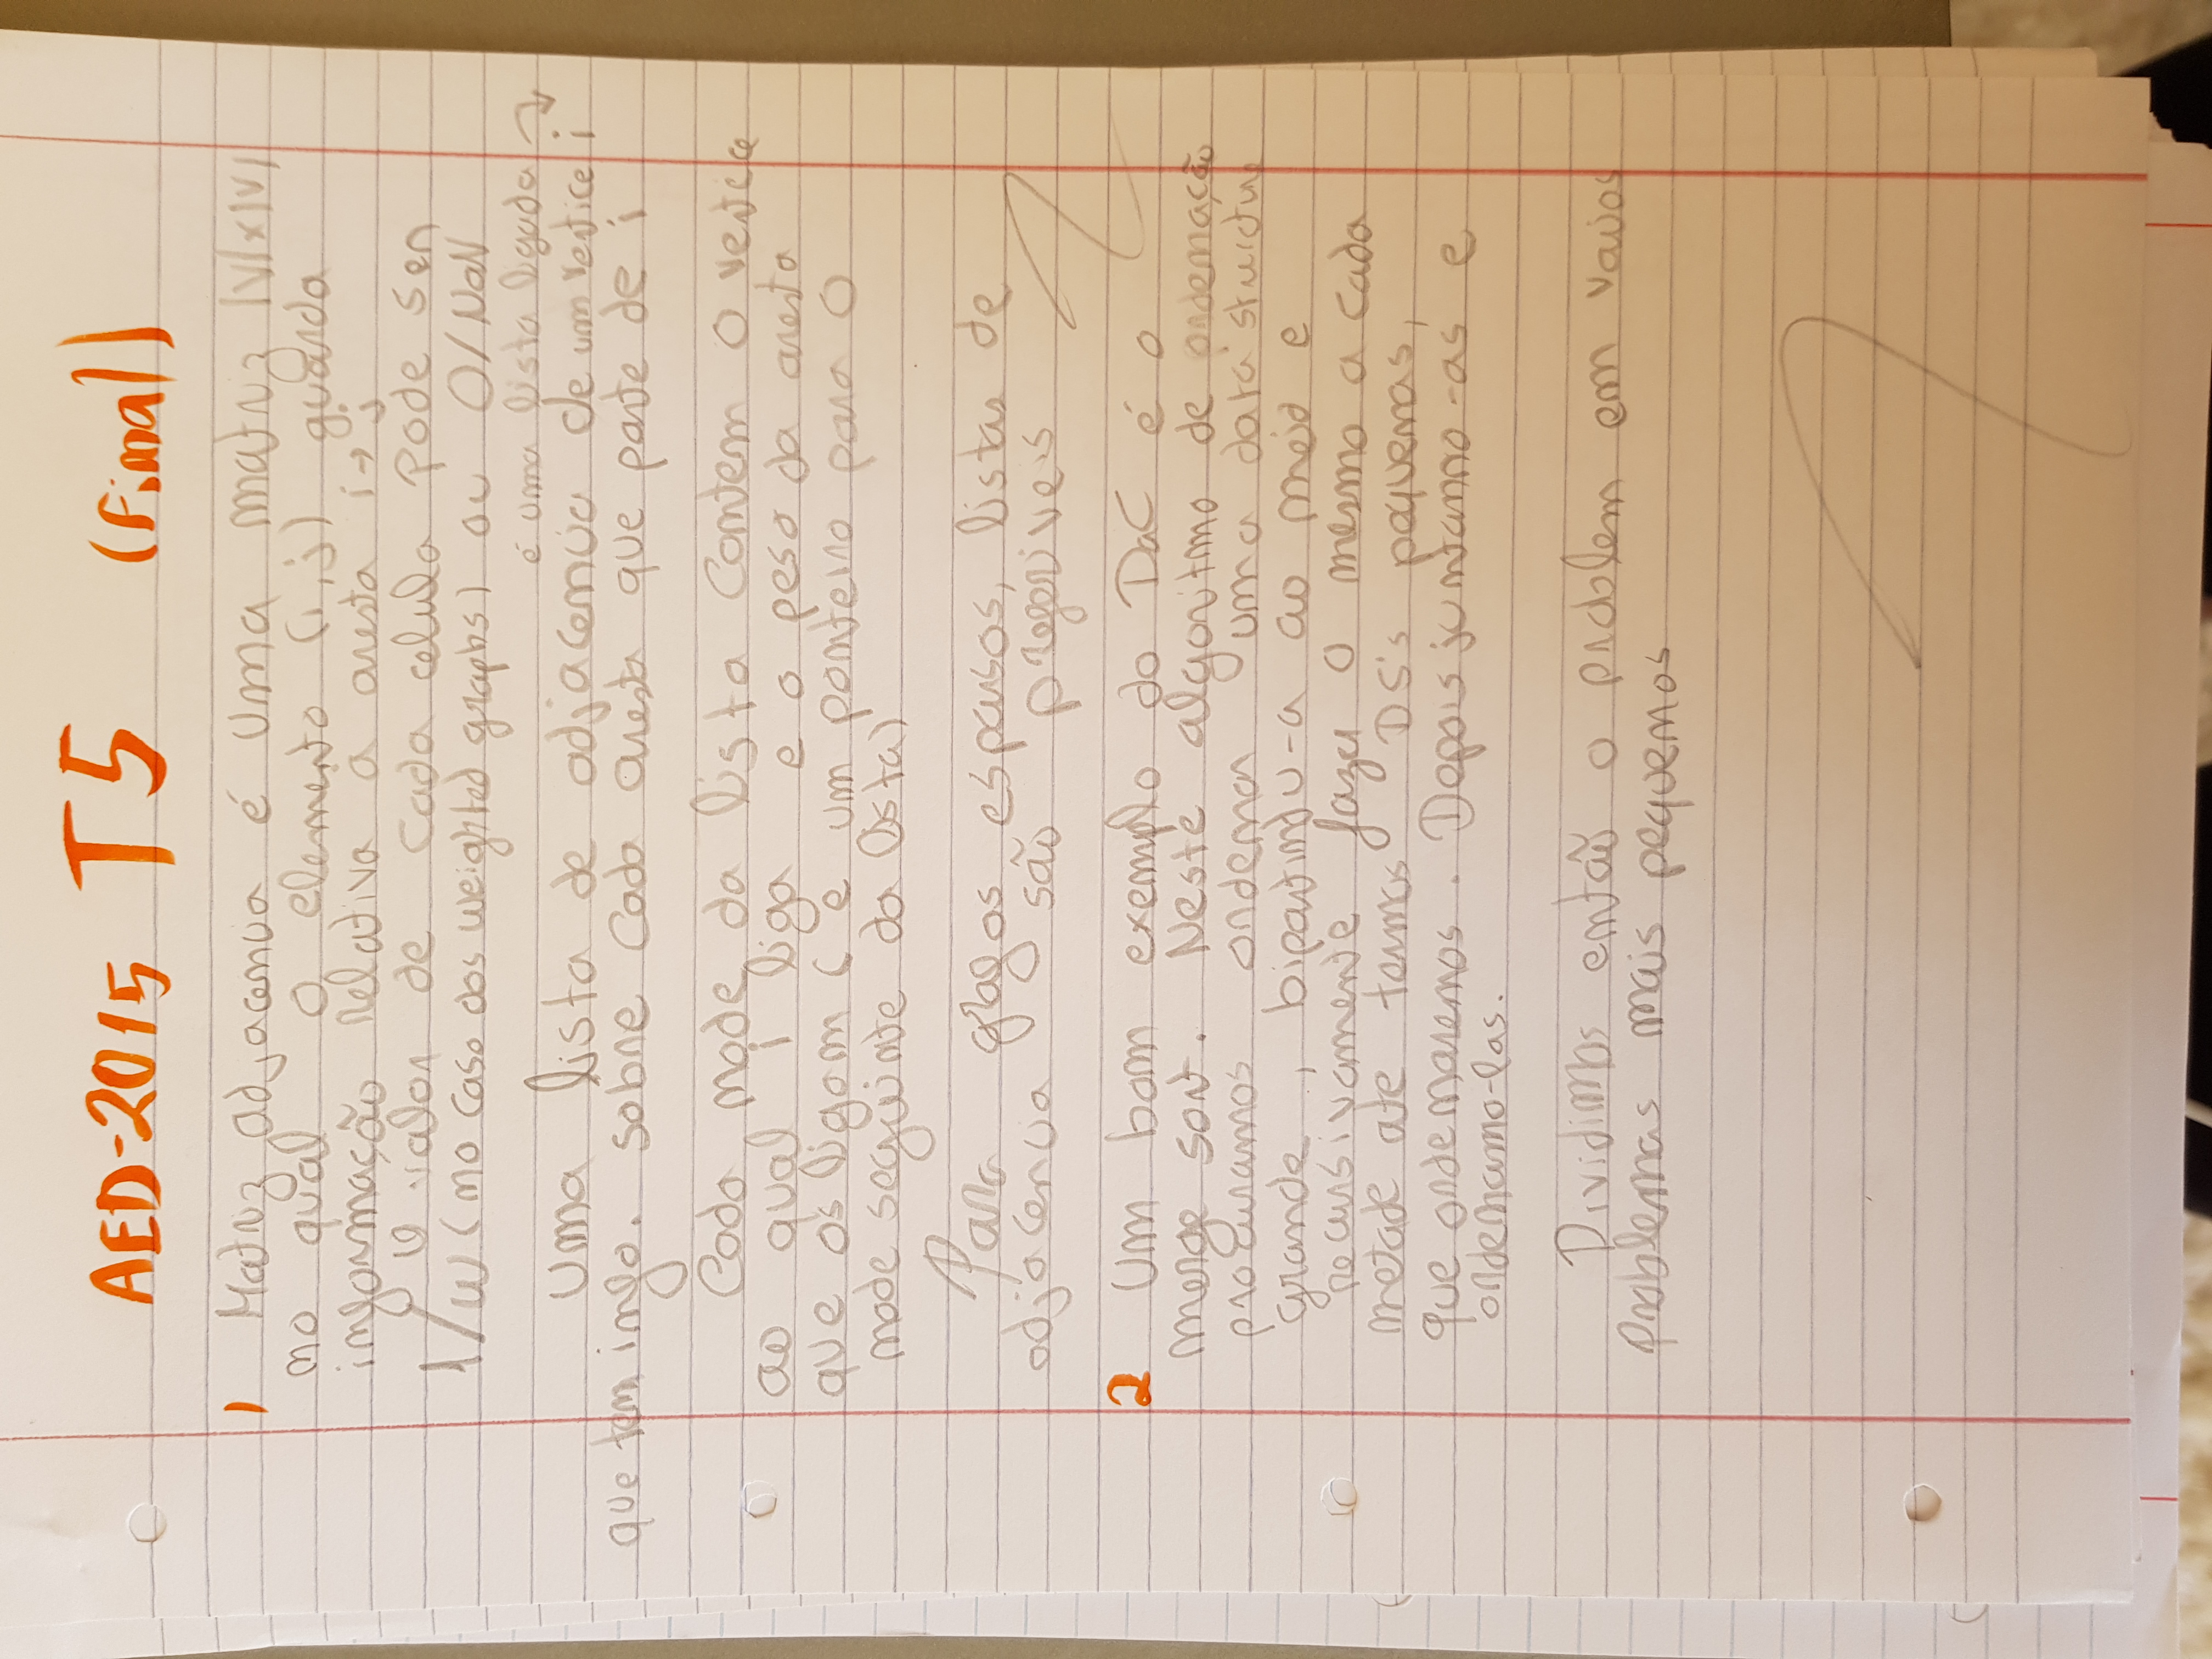 AED-2015 T5 (Final)
1 Matriz adjacencia é uma matriz |V|x|V|
no qual o elemento (i,j) guarda
informação relativa à aresta i→j
O valor de cada celula pode ser
1/w (no caso dos weighted graphs) ou 0/NaN
é uma lista ligada
Uma lista de adjacencia de um vertice i
que tem info. sobre cada aresta que parte de i
Cada node da lista contem o vertice
ao qual i liga e o peso da aresta
que os ligam (e um ponteiro para o
node seguinte da lista)
Para grafos esparsos, listas de
adjacencia são preferiveis
2 Um bom exemplo do DaC é o
merge sort. Neste algoritmo de ordenação
procuramos ordenar uma data structure
grande, bipartindo-a ao meio e
recursivamente fazer o mesmo a cada
metade ate termos DS's pequenas,
que ordenaremos. Depois juntamo-as e
ordenamo-las.
Dividimos então o problem em varios
problemas mais pequenos